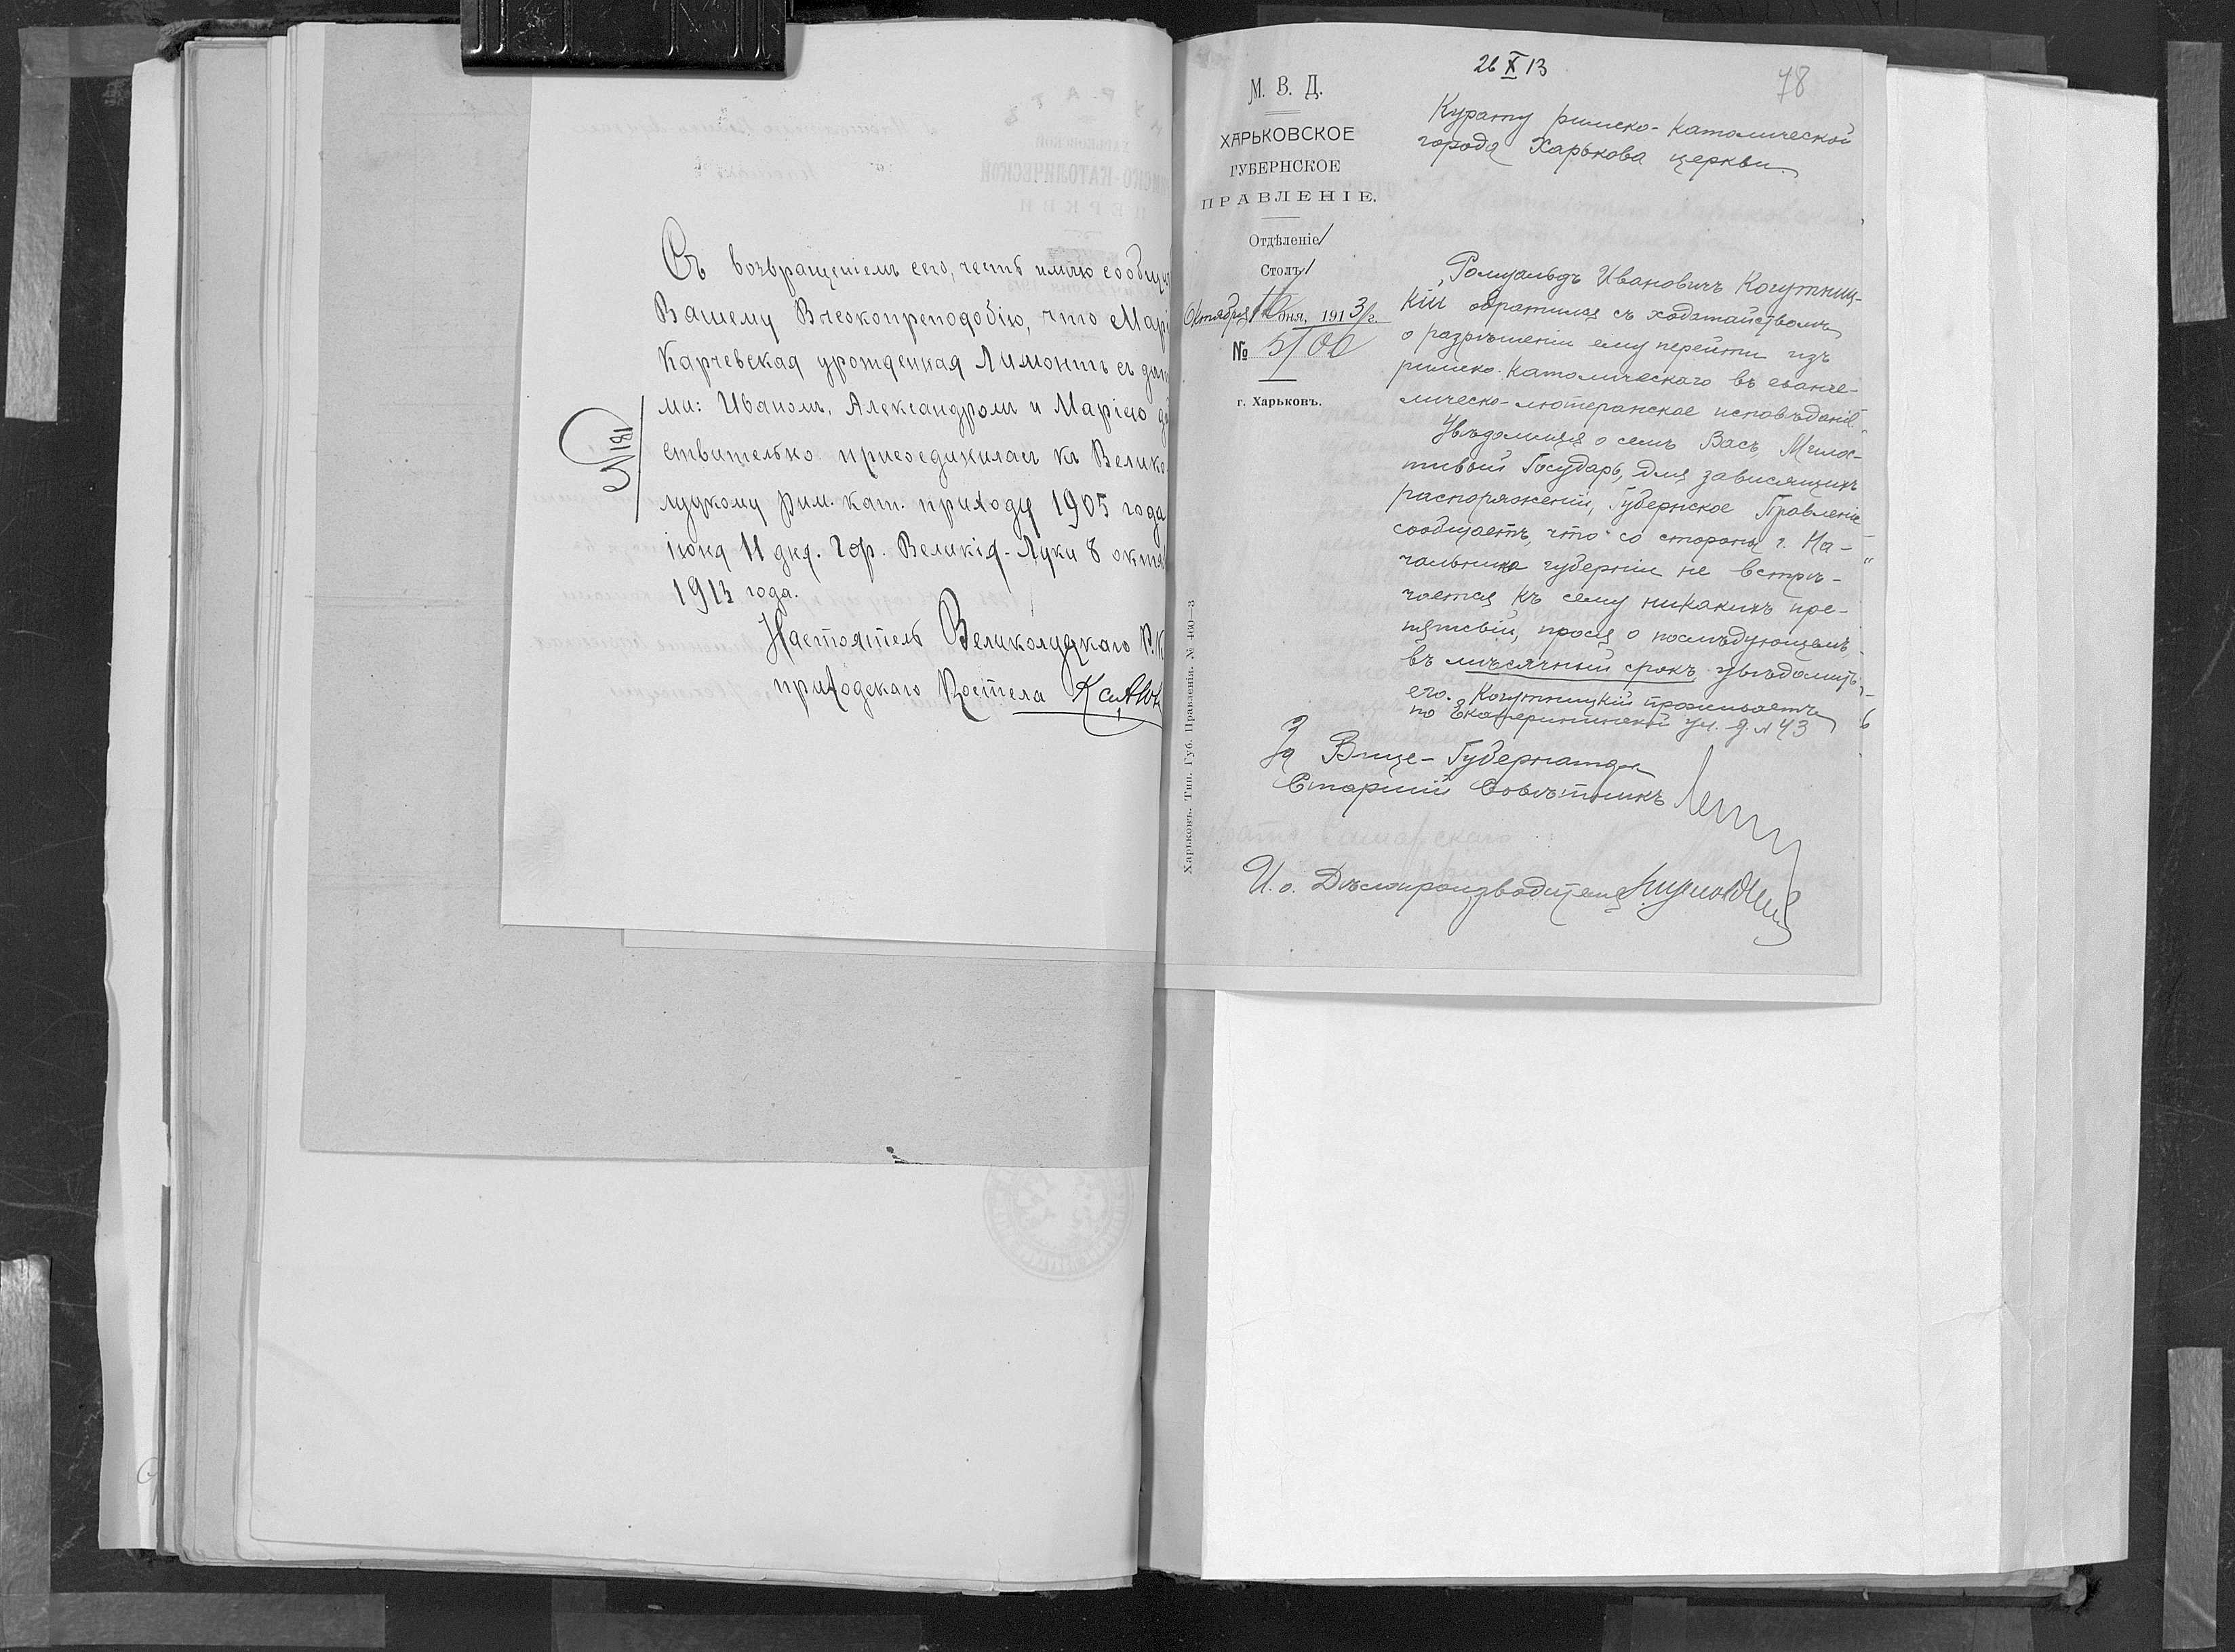 Съ возвращеніемъ сего, честь имѣю сообщи
Вашему Высокопреподобію, что Марі
Карчевская урожденная Лимонтъ съ дѣт
ми: Иваномъ, Александромъ и Маріею дѣ
ствительно присоединилась къ Велико
луцкому Рим. кат. приходу 1905 года
іюня 11 дня. Гор. Великія-Луки 8 октя
1913 года.
Настоятель Великолуцкаго Р. К
приходскаго Костела
№ 181
26 X 13
78
М. В. Д.
ХАРЬКОВСКОЕ
ГУБЕРНСКОЕ
ПРАВЛЕНІЕ.
Отдѣленіе 1
Столъ 1
Октября дня, 1913 г.
№ 5100
г. Харьковъ.
Харьковъ. Тип. Губ. Правленія. № 460—3
Курату римско-католической
города Харькова церкви.
Ромуальдъ Ивановичъ Когутниц-
кій обратился съ ходатайствомъ
о разрѣшеніи ему перейти изъ
римско-католическаго въ еванге-
лическо-лютеранское исповѣданіе.
Увѣдомляя о семъ Васъ, Милос-
тивый Государь, для зависящихъ
распоряженій, Губернское Правленіе
сообщаетъ, что со стороны г. На-
чальника губерніи не встрѣ-
чается къ сему никакихъ пре-
пятствій, прося о послѣдующемъ
въ мѣсячный срокъ увѣдомить
его. Когутницкій проживаетъ
по Екатерининской ул. д. № 43
За Вице-Губернатора
Старшій Совѣтникъ
И. о. Дѣлопроизводителя